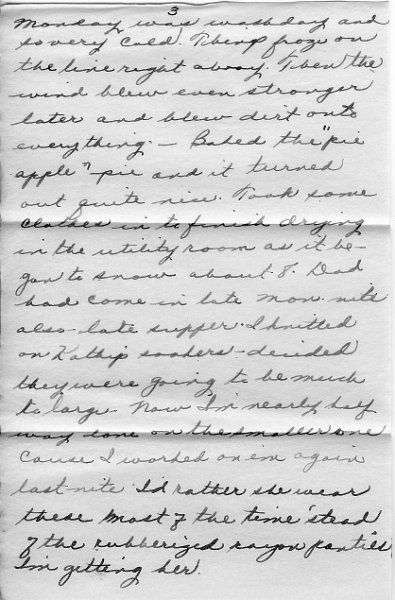 3
Monday was washday and
so very cold. Things froze on
the line right away. Then the
wind blew even stronger
later and blew dirt onto
everything. - Baked the "pie
apple" pie and it turned
out quite nice. Took some
clothes in to finish drying
in the utility room as it be-
gan to snow about 8. Dad
had come in late Mon. nite
also - late supper. I knitted
on Kathip soakers - decided
they were going to be much
to large. Now I'm nearly half
way done on the smaller one
cause I worked on em again
last nite. I'd rather she wear
these most of the time 'stead
of the rubberized rayon panties
I'm getting her.